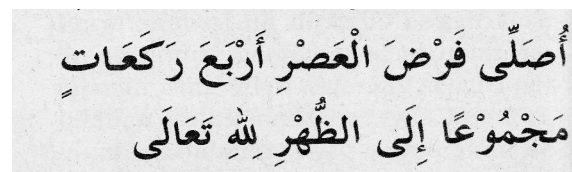 أُصَلِّى فَرْضَ الْعَصْرِ أَرْبَعَ رَكَعَاتٍ
مَجْمُوْعًا إِلَى الظُّهْرِ لِلهِ تَعَالَى